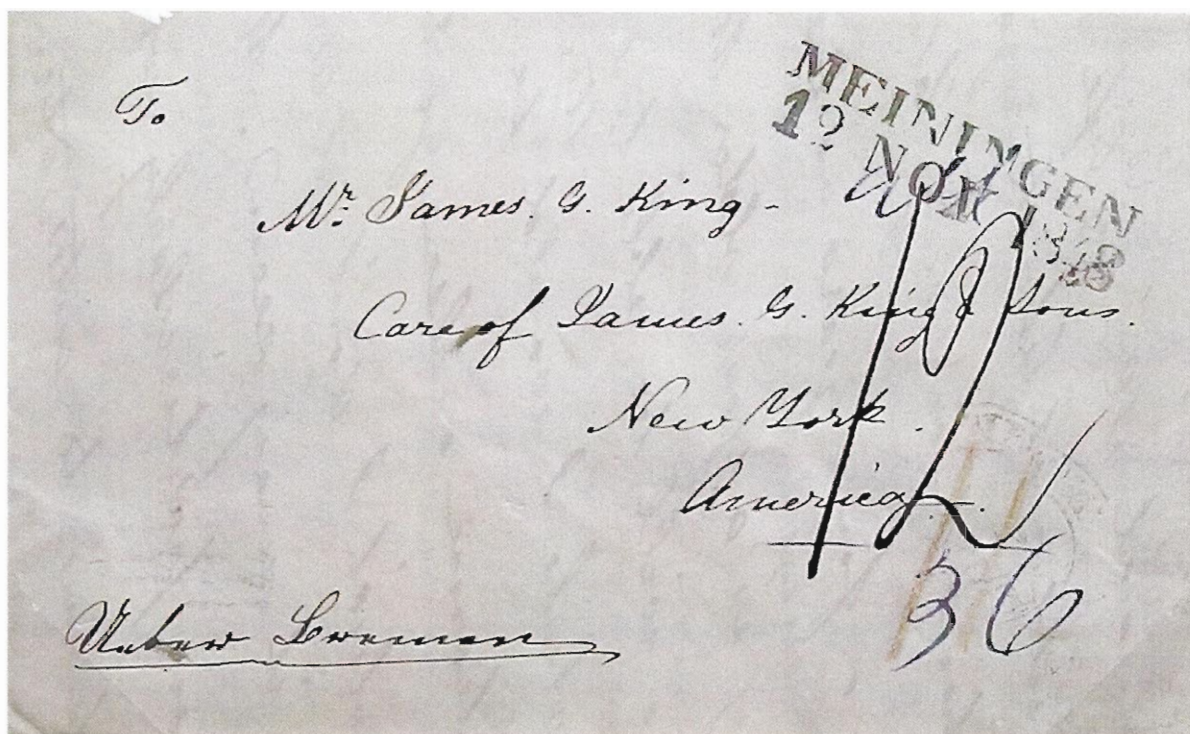 To
MEININGEN
12 NOV 1848
Mr. James. G. King -
Care of James. G. King & Sons.
New York.
America.
12
36
Ueber Bremen